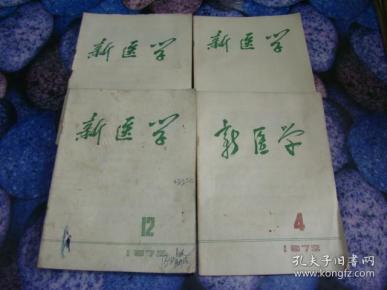 新医学
新医学
新医学
12
1972
新医学
4
1972
孔夫子旧书网